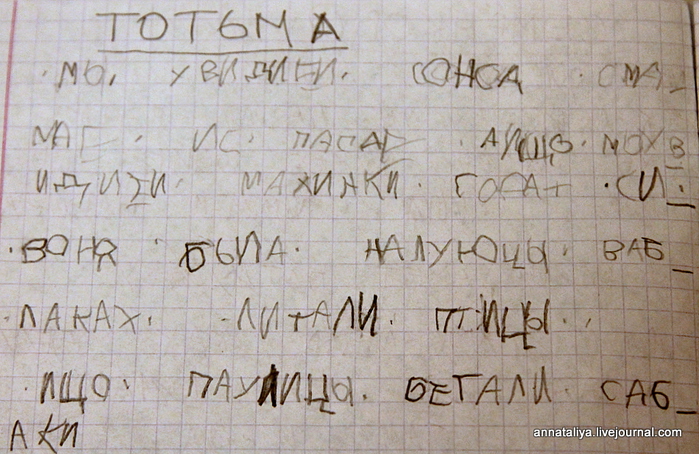 ТОТЬМА
· МЫ · УВИДИЕИ · СОНСА · СМА_
МАГ · ИС · ПАСАД · АИЩО · МОУ В
ИДИЗИ · МАХИНКИ · ГОРАТ · СИ_
· ВОНЯ · БЫЛА · НАЛУЮЦЫ · ВАБ_
· ЛАКАХ · ЛИТАЛИ · ПТИЦЫ ·
· ИЩО · ПАУЛИЦЫ · БЕГАЛИ · САБ_
АКИ
annataliya.livejournal.com